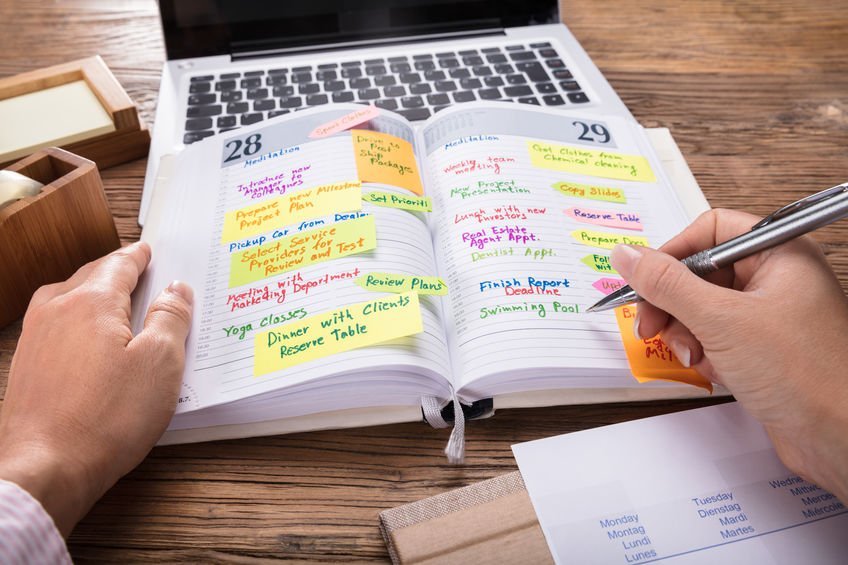 28
Meditation
Sport Clothes
Drive to
Post
Ship Packages
Introduce New
Manager to
colleagues
Prepare new Milestone
Project Plan
Set Prioriti
Pickup Car from Dealer
Select Service
Providers for
Review and Test
Meeting with
Marketing Department
Review Plans
Yoga Classes
Dinner with Clients
Reserve Table
8.7.
29
Meditation
Weekly team
meeting
Get Clothes from
Chemical cleaning
New Project
Presentation
Copy Slides
Lunch with new
Investors
Reserve Table
Real Estate
Agent Appt.
Prepare
Dentist Appt.
Finish Report
Deadline
Swimming Pool
Monday
Montag
Lundi
Lunes
Tuesday
Dienstag
Mardi
Martes